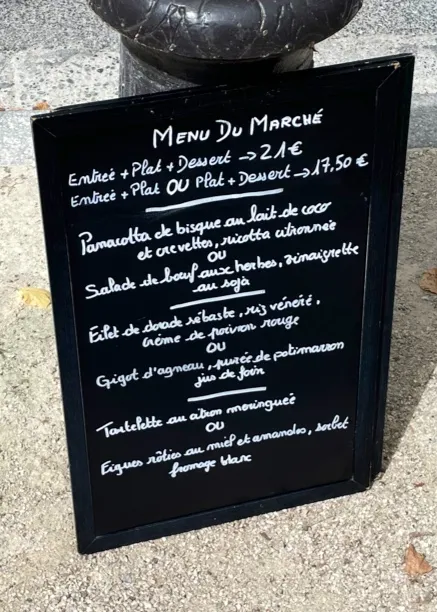 MENU DU MARCHÉ
Entreé + Plat + Dessert → 21€
Entreé + Plat OU Plat + Dessert → 17,50 €
Panacotta de bisque au lait de coco
et crevettes, ricotta citronnée
OU
Salade de bœuf aux herbes, vinaigrette
au soja
Filet de dorade sébaste, riz vénéré,
crème de poivron rouge
OU
Gigot d'agneau, purée de potimarron
jus de foin
Tartelette au citron meringueé
OU
Figues rôties au miel et amandes, sorbet
fromage blanc